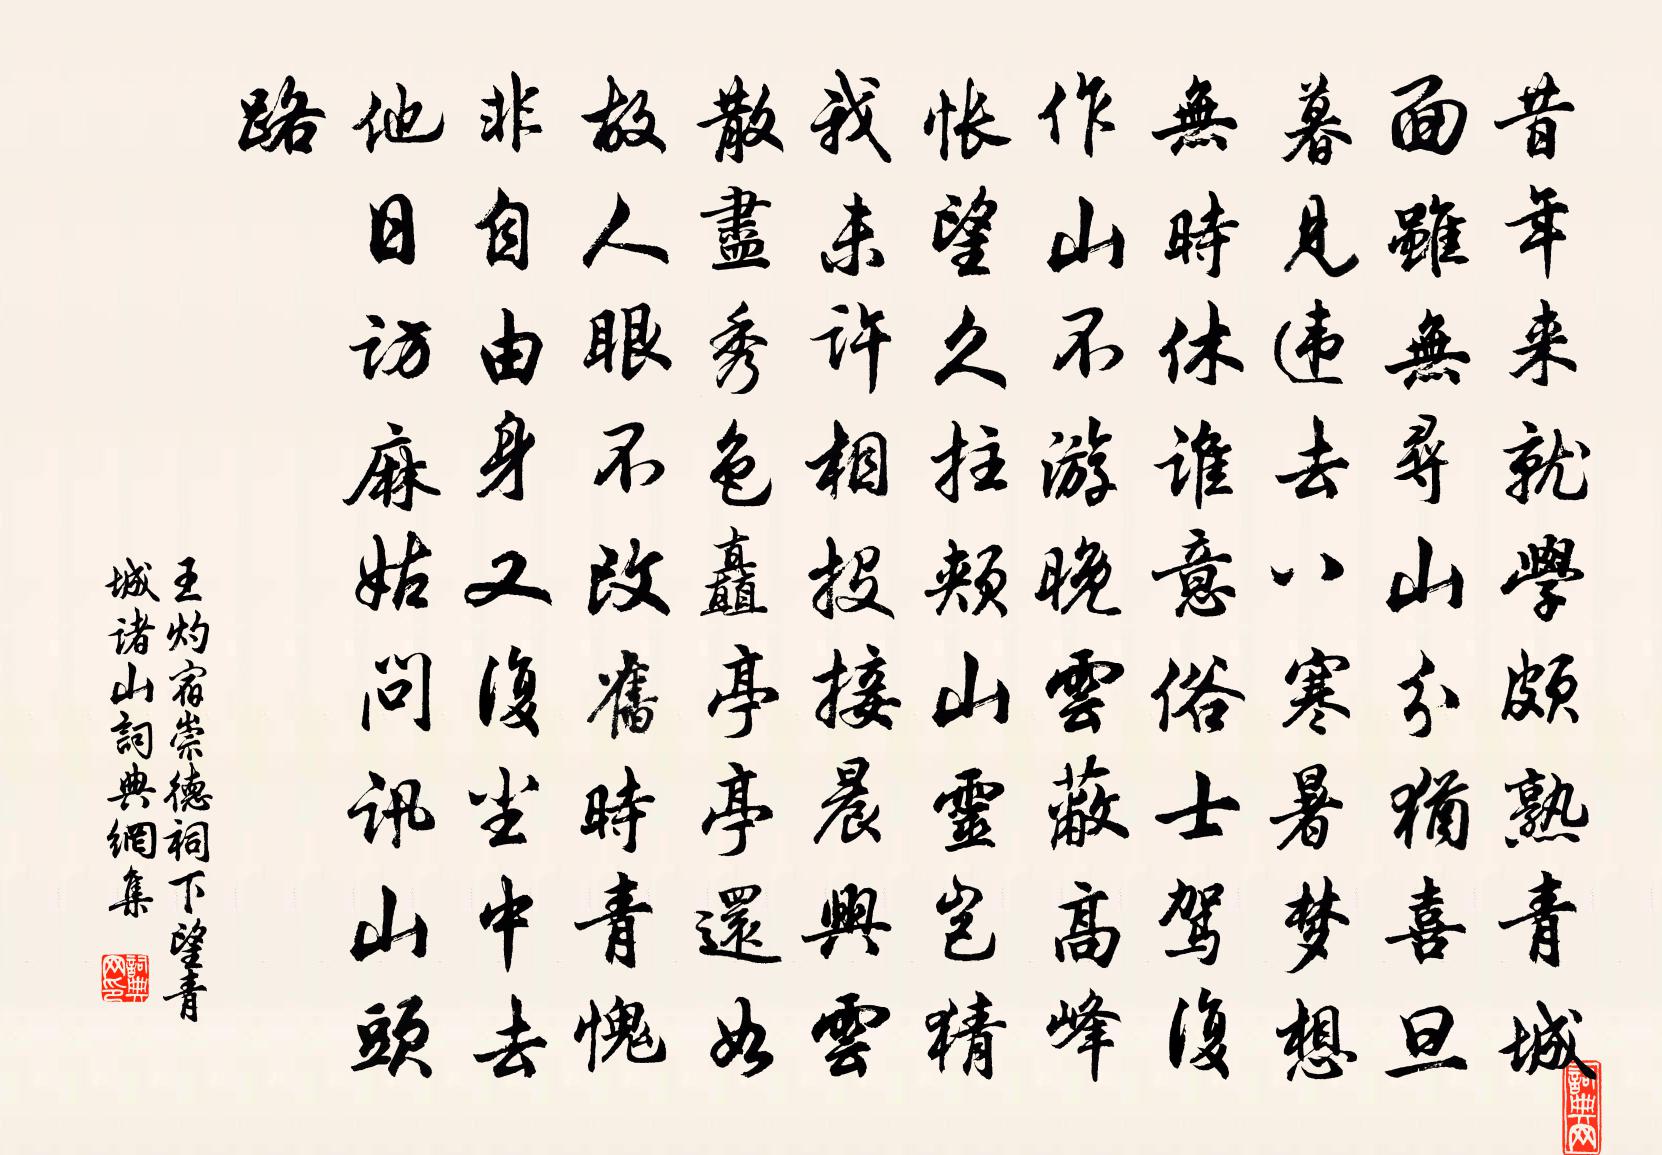 昔年来就學頗熟青城
面雖無尋山分猶喜旦
暮見违去八寒暑梦想
無時休谁意俗士驾復
作山不游晚雲蔽高峰
怅望久拄颊山靈岂猜
我未许相投接晨興雲
散盡秀色矗亭亭還如
故人眼不改舊時青愧
非自由身又復尘中去
他日访麻姑问讯山頭
路
王灼宿崇德祠下望青
城诸山詞典網集
詞典网印
詞典网